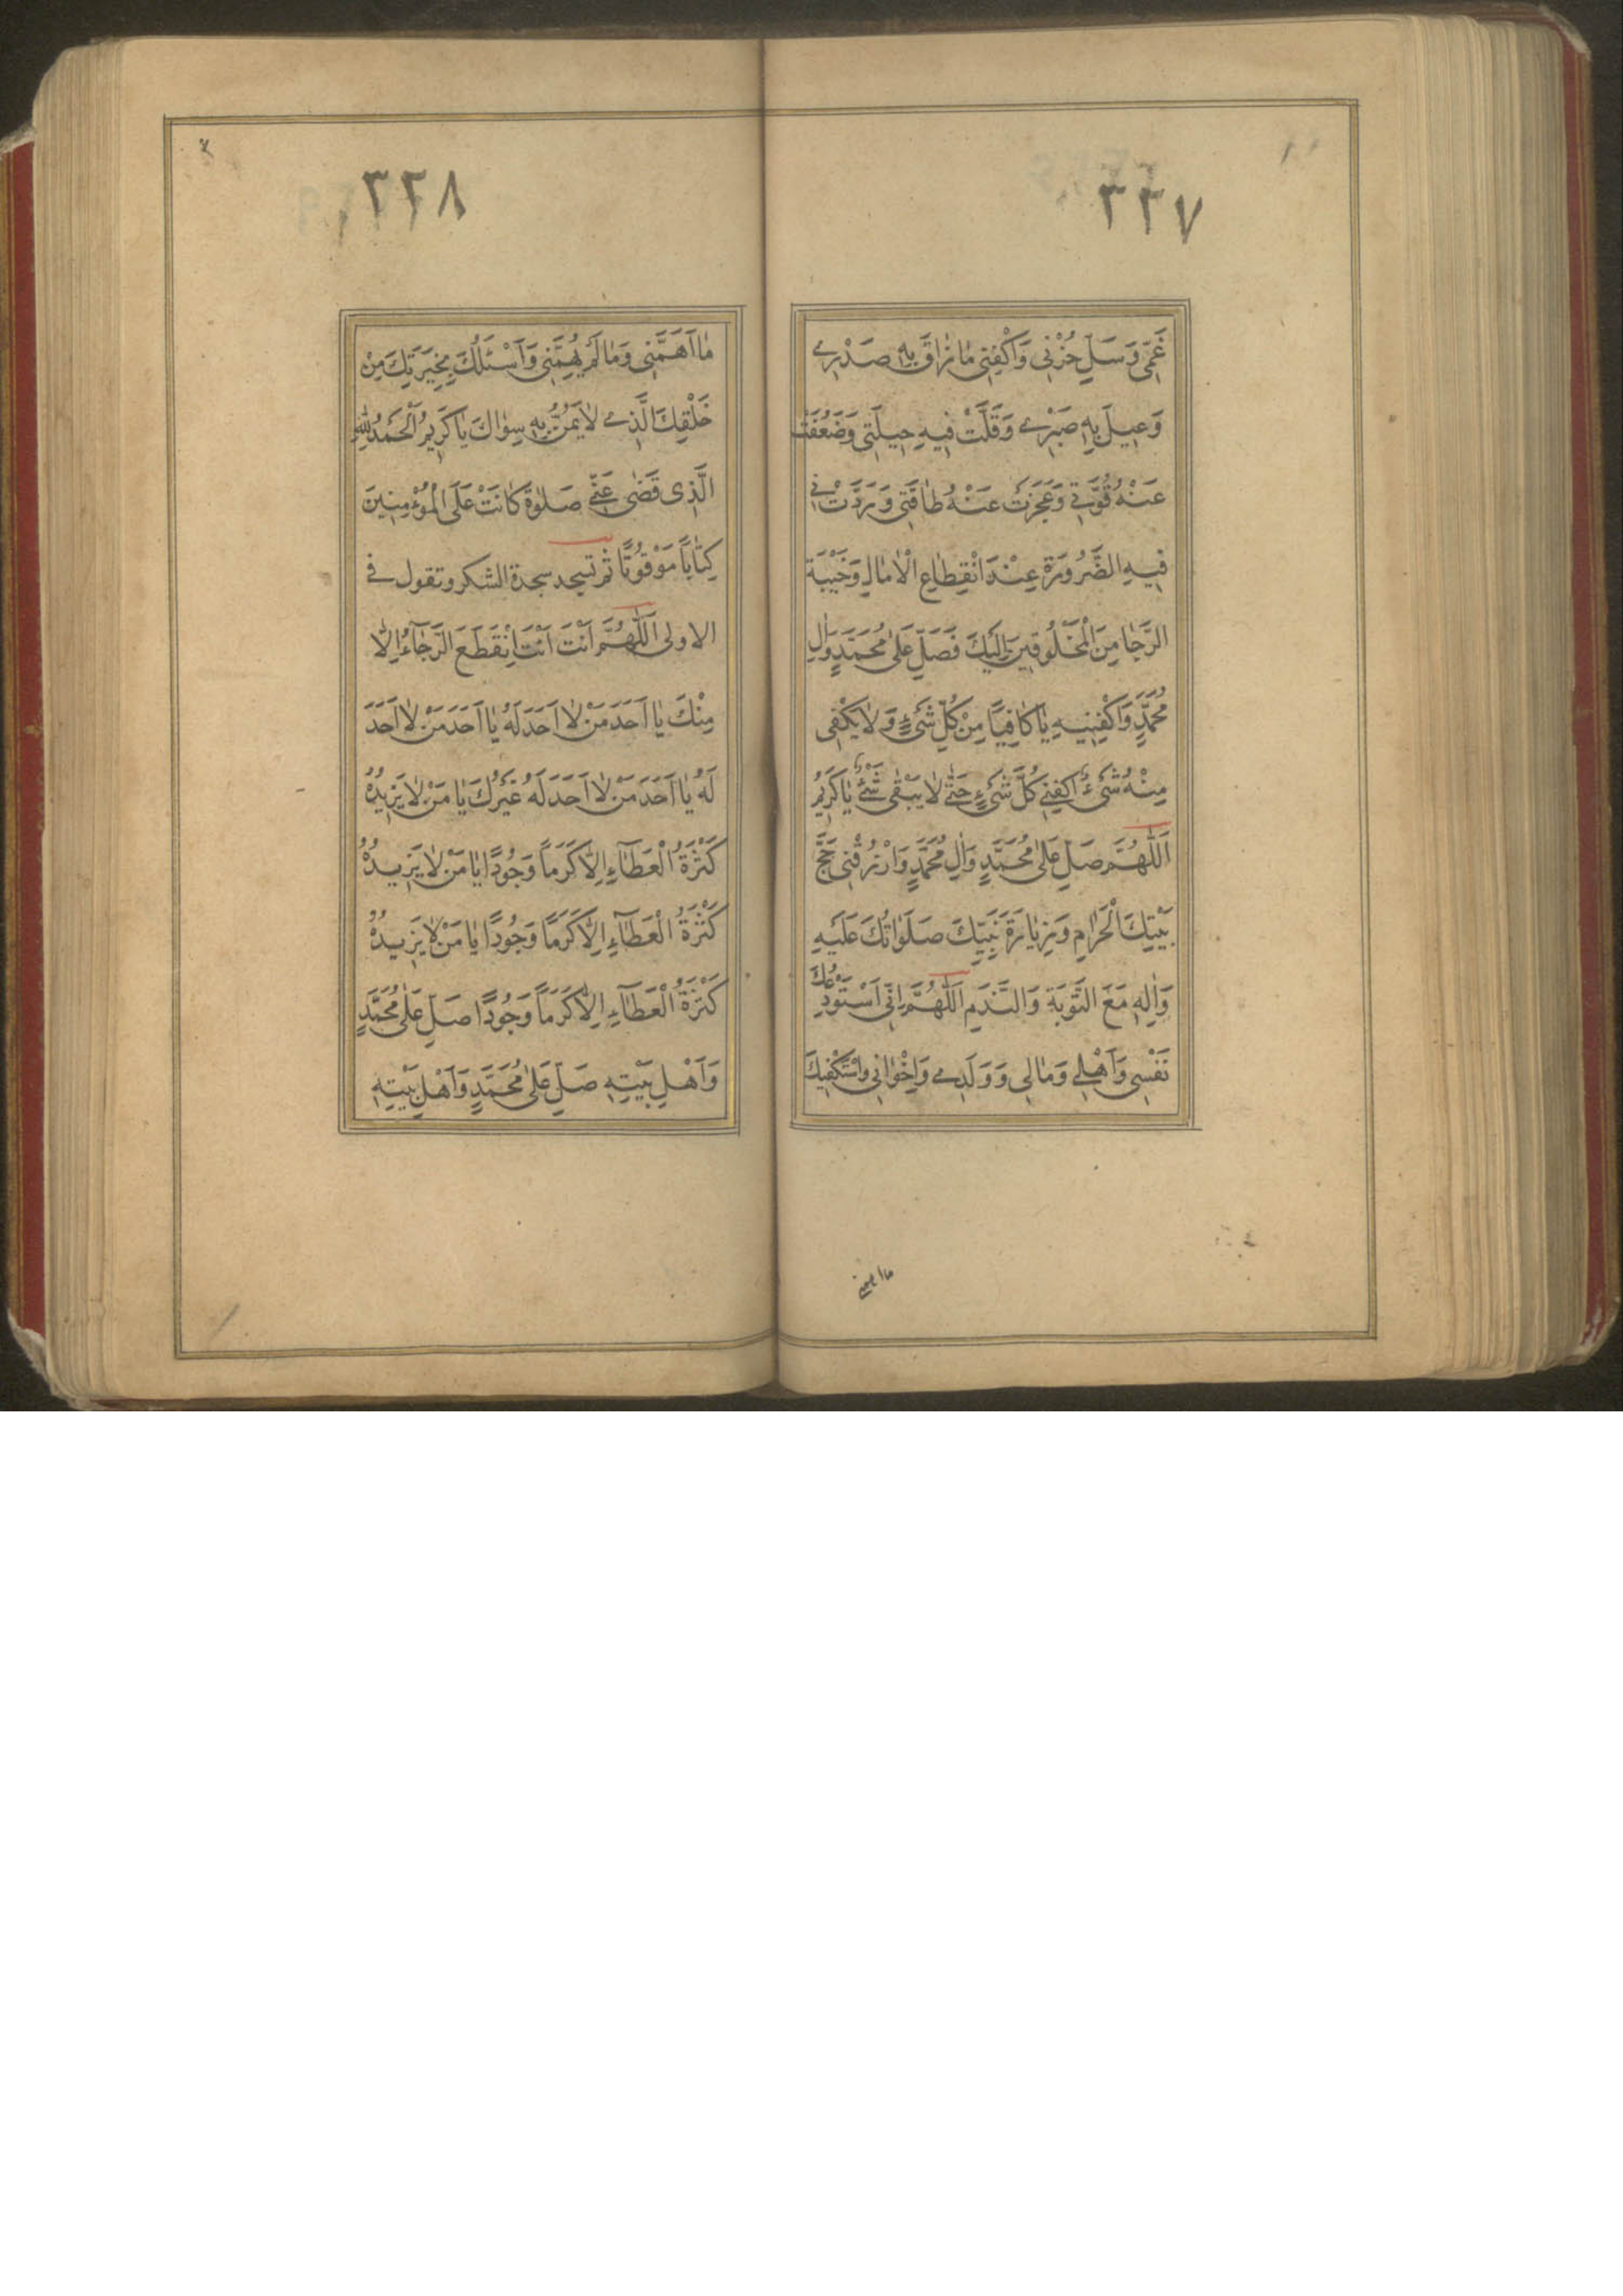 ٣٣٧
غَمّی وَسَلِّ حُزْنی وَاكْفِنی مٰا ضٰاقَ بِهِ صَدْری
وَعیلَ بِهِ صَبْری وَقَلَّتْ فیهِ حیلَتی وَضَعُفَتْ
عَنْهُ قُوَّتی وَعَجَزَتْ عَنْهُ طٰاقَتی وَرَدَّتْنی
فیهِ الضَّرُورَةُ عِنْدَ انْقِطٰاعِ الْاٰمٰالِ وَخَیْبَةِ
الرَّجٰا مِنَ الْمَخْلُوقینَ اِلَیْكَ فَصَلِّ عَلیٰ مُحَمَّدٍ وَاٰلِ
مُحَمَّدٍ وَاكْفِنیهِ یٰا كٰافِیاً مِنْ كُلِّ شَیْءٍ وَلٰا یَكْفی
مِنْهُ شَیْءٌ اِكْفِنی كُلَّ شَیْءٍ حَتّیٰ لٰا یَبْقیٰ شَیْءٌ یٰا كَریمُ
اَللّٰهُمَّ صَلِّ عَلیٰ مُحَمَّدٍ وَاٰلِ مُحَمَّدٍ وَارْزُقْنی حَجَّ
بَیْتِكَ الْحَرٰامِ وَزِیٰارَةَ نَبِیِّكَ صَلَوٰاتُكَ عَلَیْهِ
وَاٰلِهِ مَعَ التَّوْبَةِ وَالنَّدَمِ اَللّٰهُمَّ اِنّی اَسْتَوْدِعُكَ
نَفْسی وَاَهْلی وَمٰالی وَوَلَدی وَاِخْوٰانی وَاَسْتَكْفیكَ
ما اهمنی
٣٣٨
مٰا اَهَمَّنی وَمٰا لَمْ یُهِمَّنی وَاَسْئَلُكَ بِخِیَرَتِكَ مِنْ
خَلْقِكَ الَّذی لٰا یَمُنُّ بِهِ سِوٰاكَ یٰا كَریمُ اَلْحَمْدُ لِلّٰهِ
الَّذی قَضیٰ عَنّی صَلٰوةً كٰانَتْ عَلَی الْمُؤْمِنینَ
كِتٰاباً مَوْقُوتًا ثم تسجد سجدة الشكر وتقول فی
الاولی اَللّٰهُمَّ اَنْتَ اَنْتَ اِنْقَطَعَ الرَّجٰآءُ اِلّٰا
مِنْكَ یٰا اَحَدَ مَنْ لٰا اَحَدَ لَهُ یٰا اَحَدَ مَنْ لٰا اَحَدَ
لَهُ یٰا اَحَدَ مَنْ لٰا اَحَدَ لَهُ غَیْرُكَ یٰا مَنْ لٰا یَزیدُهُ
كَثْرَةُ الْعَطٰآءِ اِلّٰا كَرَماً وَجُودًا یٰا مَنْ لٰا یَزیدُهُ
كَثْرَةُ الْعَطٰآءِ اِلّٰا كَرَمًا وَجُودًا یٰا مَنْ لٰا یَزیدُهُ
كَثْرَةُ الْعَطٰآءِ اِلّٰا كَرَماً وَجُودًا صَلِّ عَلیٰ مُحَمَّدٍ
وَاَهْلِ بَیْتِهِ صَلِّ عَلیٰ مُحَمَّدٍ وَاَهْلِ بَیْتِهِ